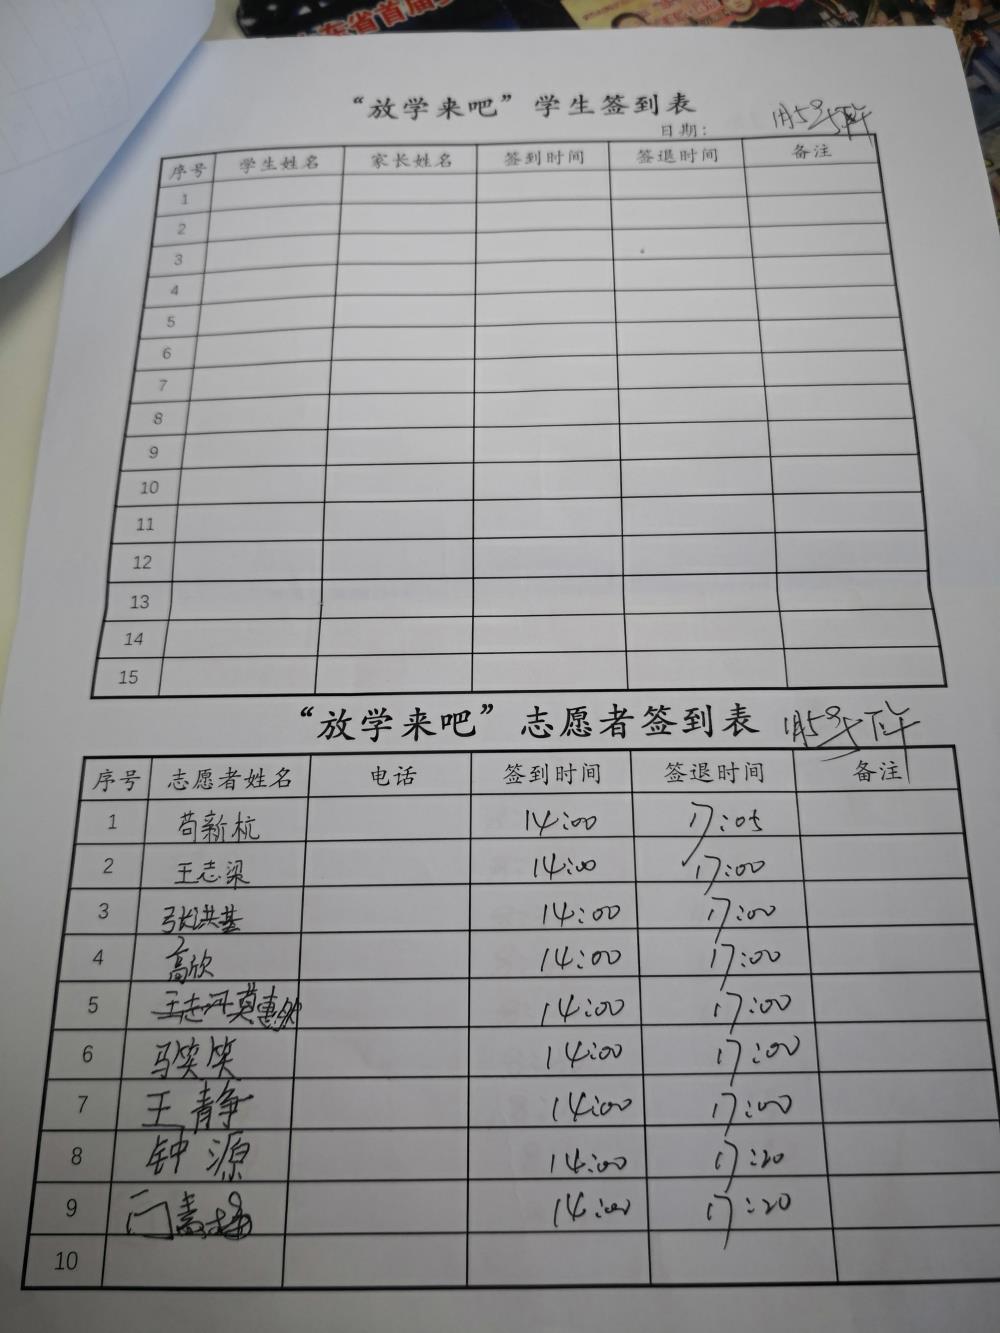 东省首届
“放学来吧”学生签到表
日期: 1月5号下午
序号 学生姓名 家长姓名 签到时间 签退时间 备注
1
2
3
4
5
6
7
8
9
10
11
12
13
14
15
“放学来吧”志愿者签到表 1月5号下午
序号 志愿者姓名 电话 签到时间 签退时间 备注
1 苟新杭 14:00 17:05
2 王志梁 14:00 17:00
3 张洪基 14:00 17:00
4 高欣 14:00 17:00
5 莫惠 14:00 17:00
6 马笑笑 14:00 17:00
7 王静 14:00 17:00
8 钟源 14:00 17:20
9 门 14:00 17:20
10